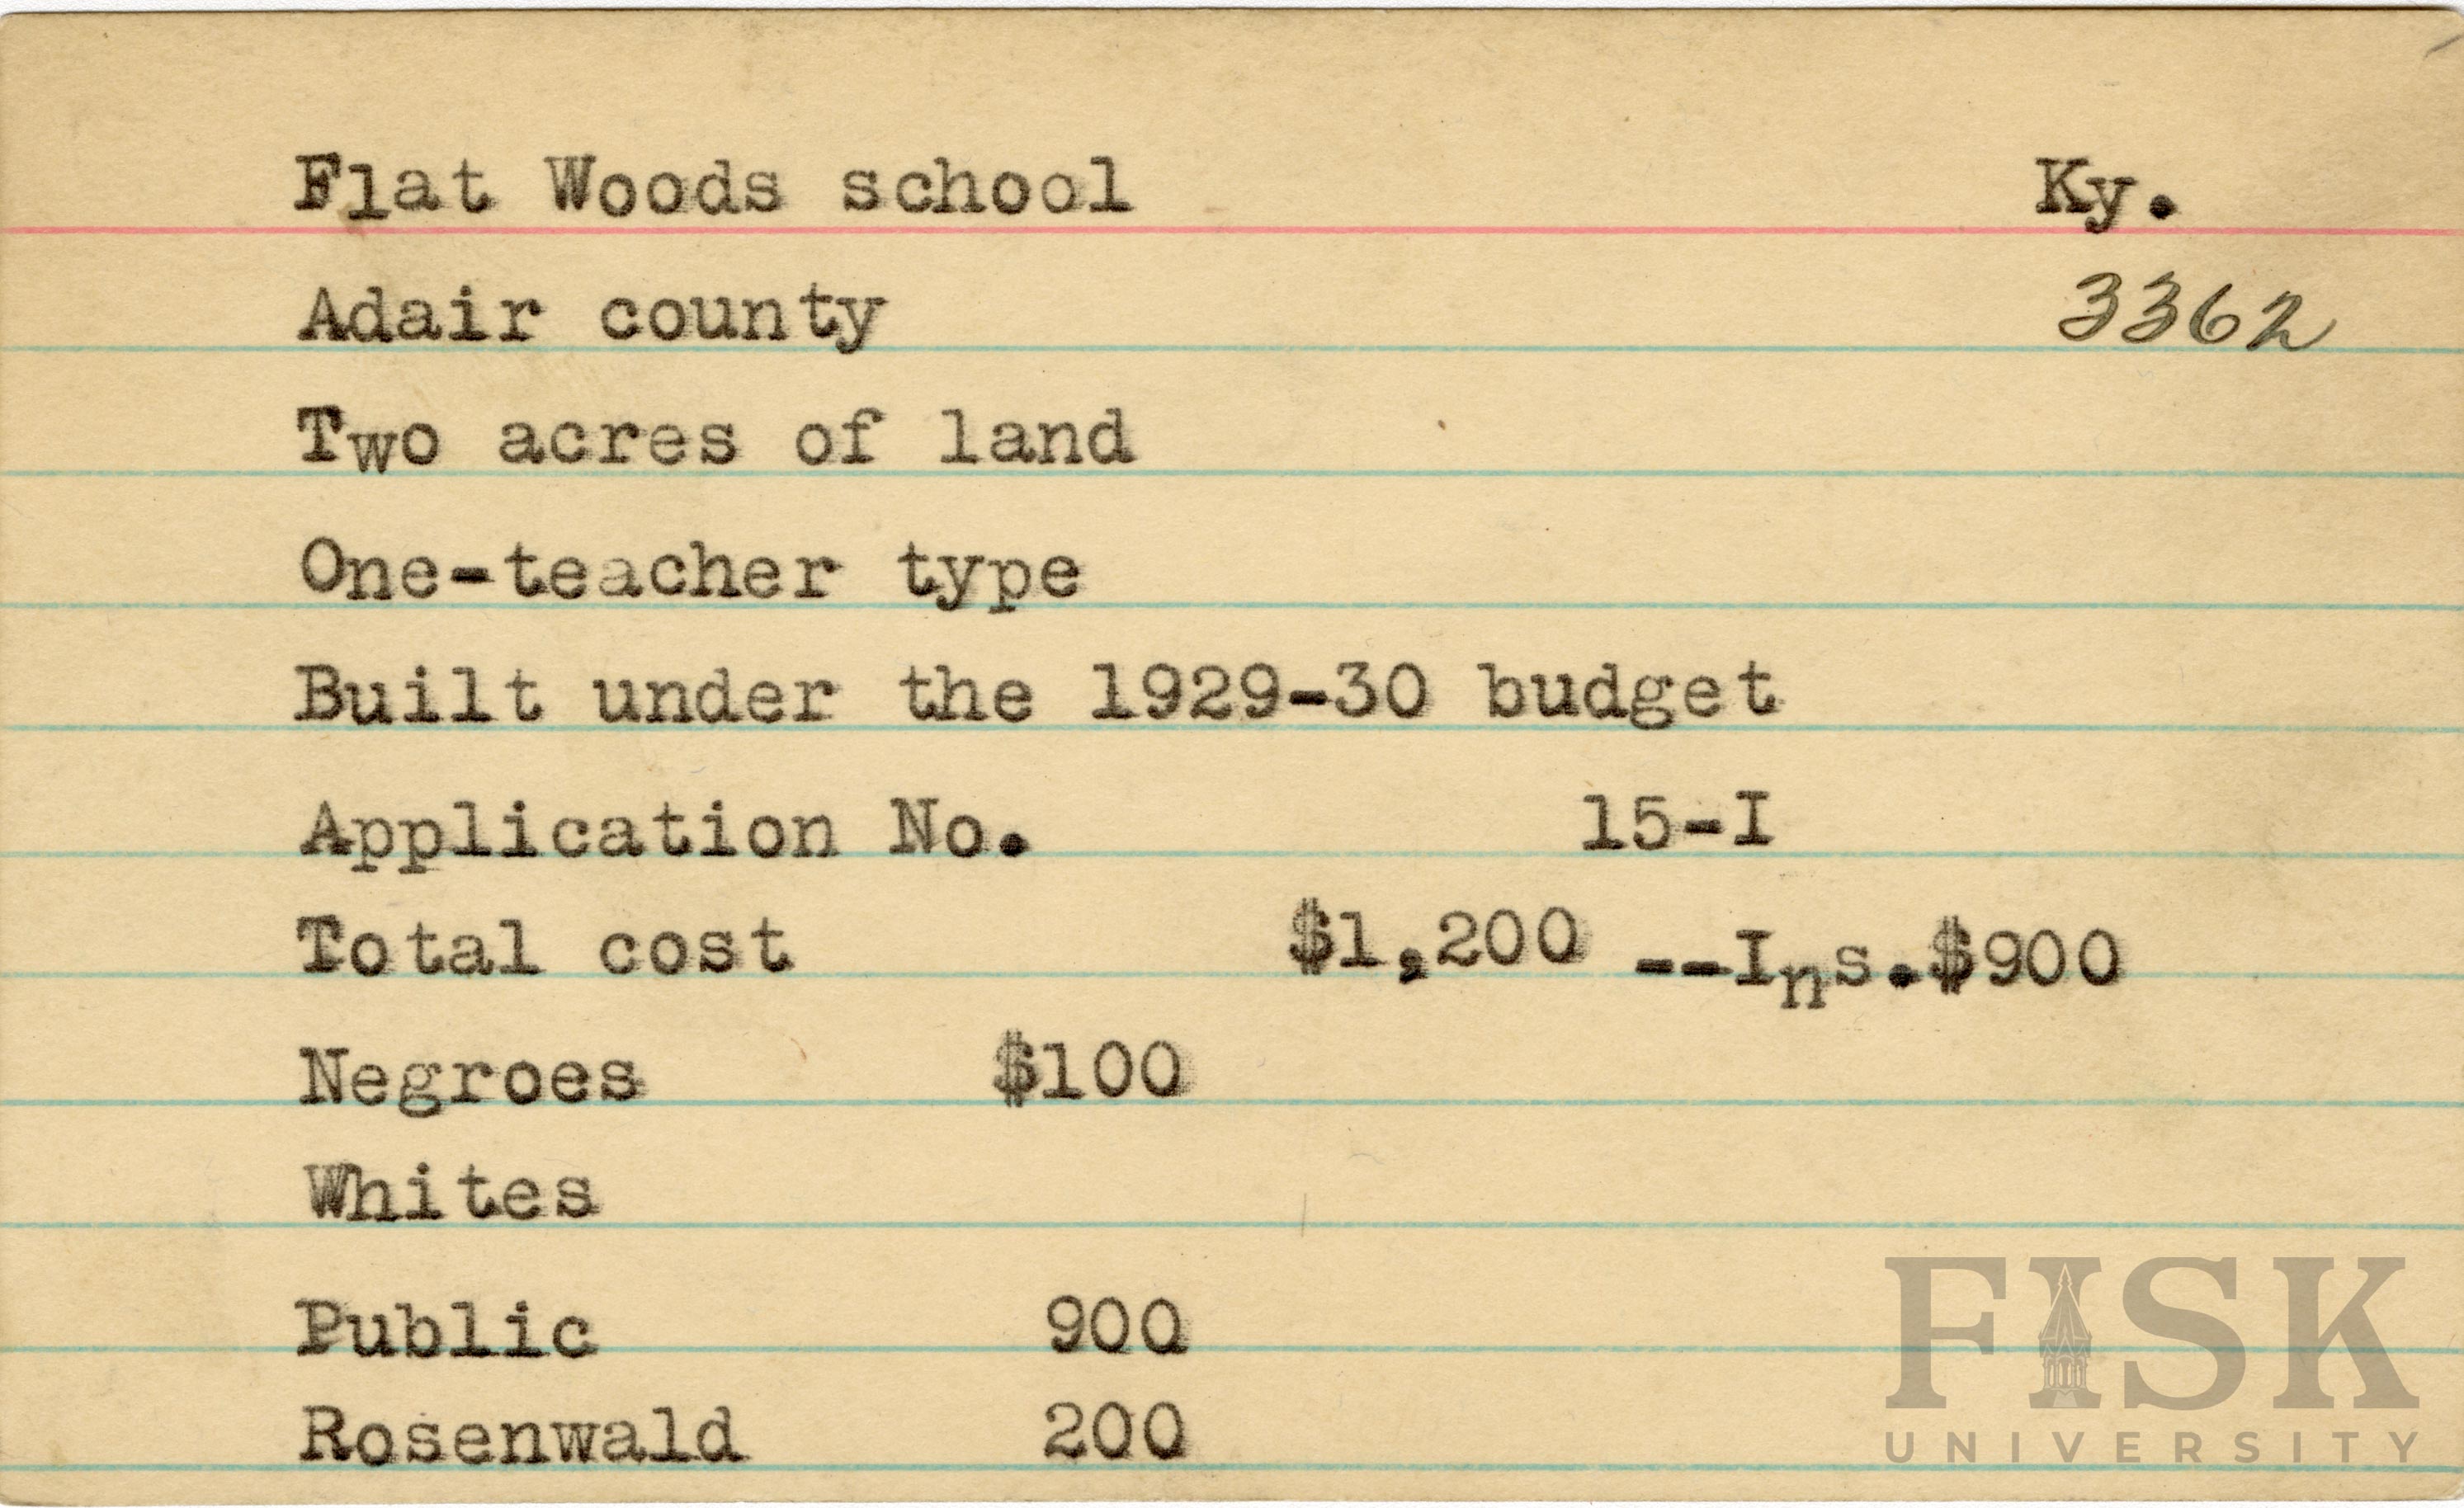 Flat Woods school Ky.
Adair county 3362
Two acres of land
One-teacher type
Built under the 1929-30 budget
Application No. 15-I
Total cost $1,200 --Ins.$900
Negroes $100
Whites
Public 900
Rosenwald 200
FISK
UNIVERSITY